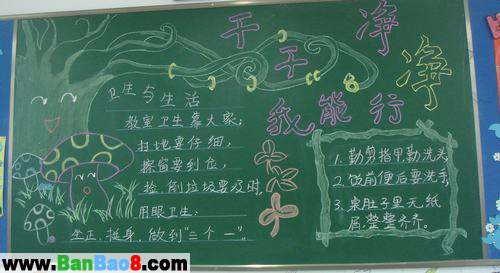 干干净净
我能行
卫生与生活
教室卫生靠大家:
扫地要仔细,
擦窗要到位,
捡、倒垃圾要及时,
用眼卫生:
坐正、挺身、做到"三个一"。
1. 勤剪指甲勤洗头
2. 饭前便后要洗手
3. 桌肚子里无纸
屑,整整齐齐。
www.BanBao8.com